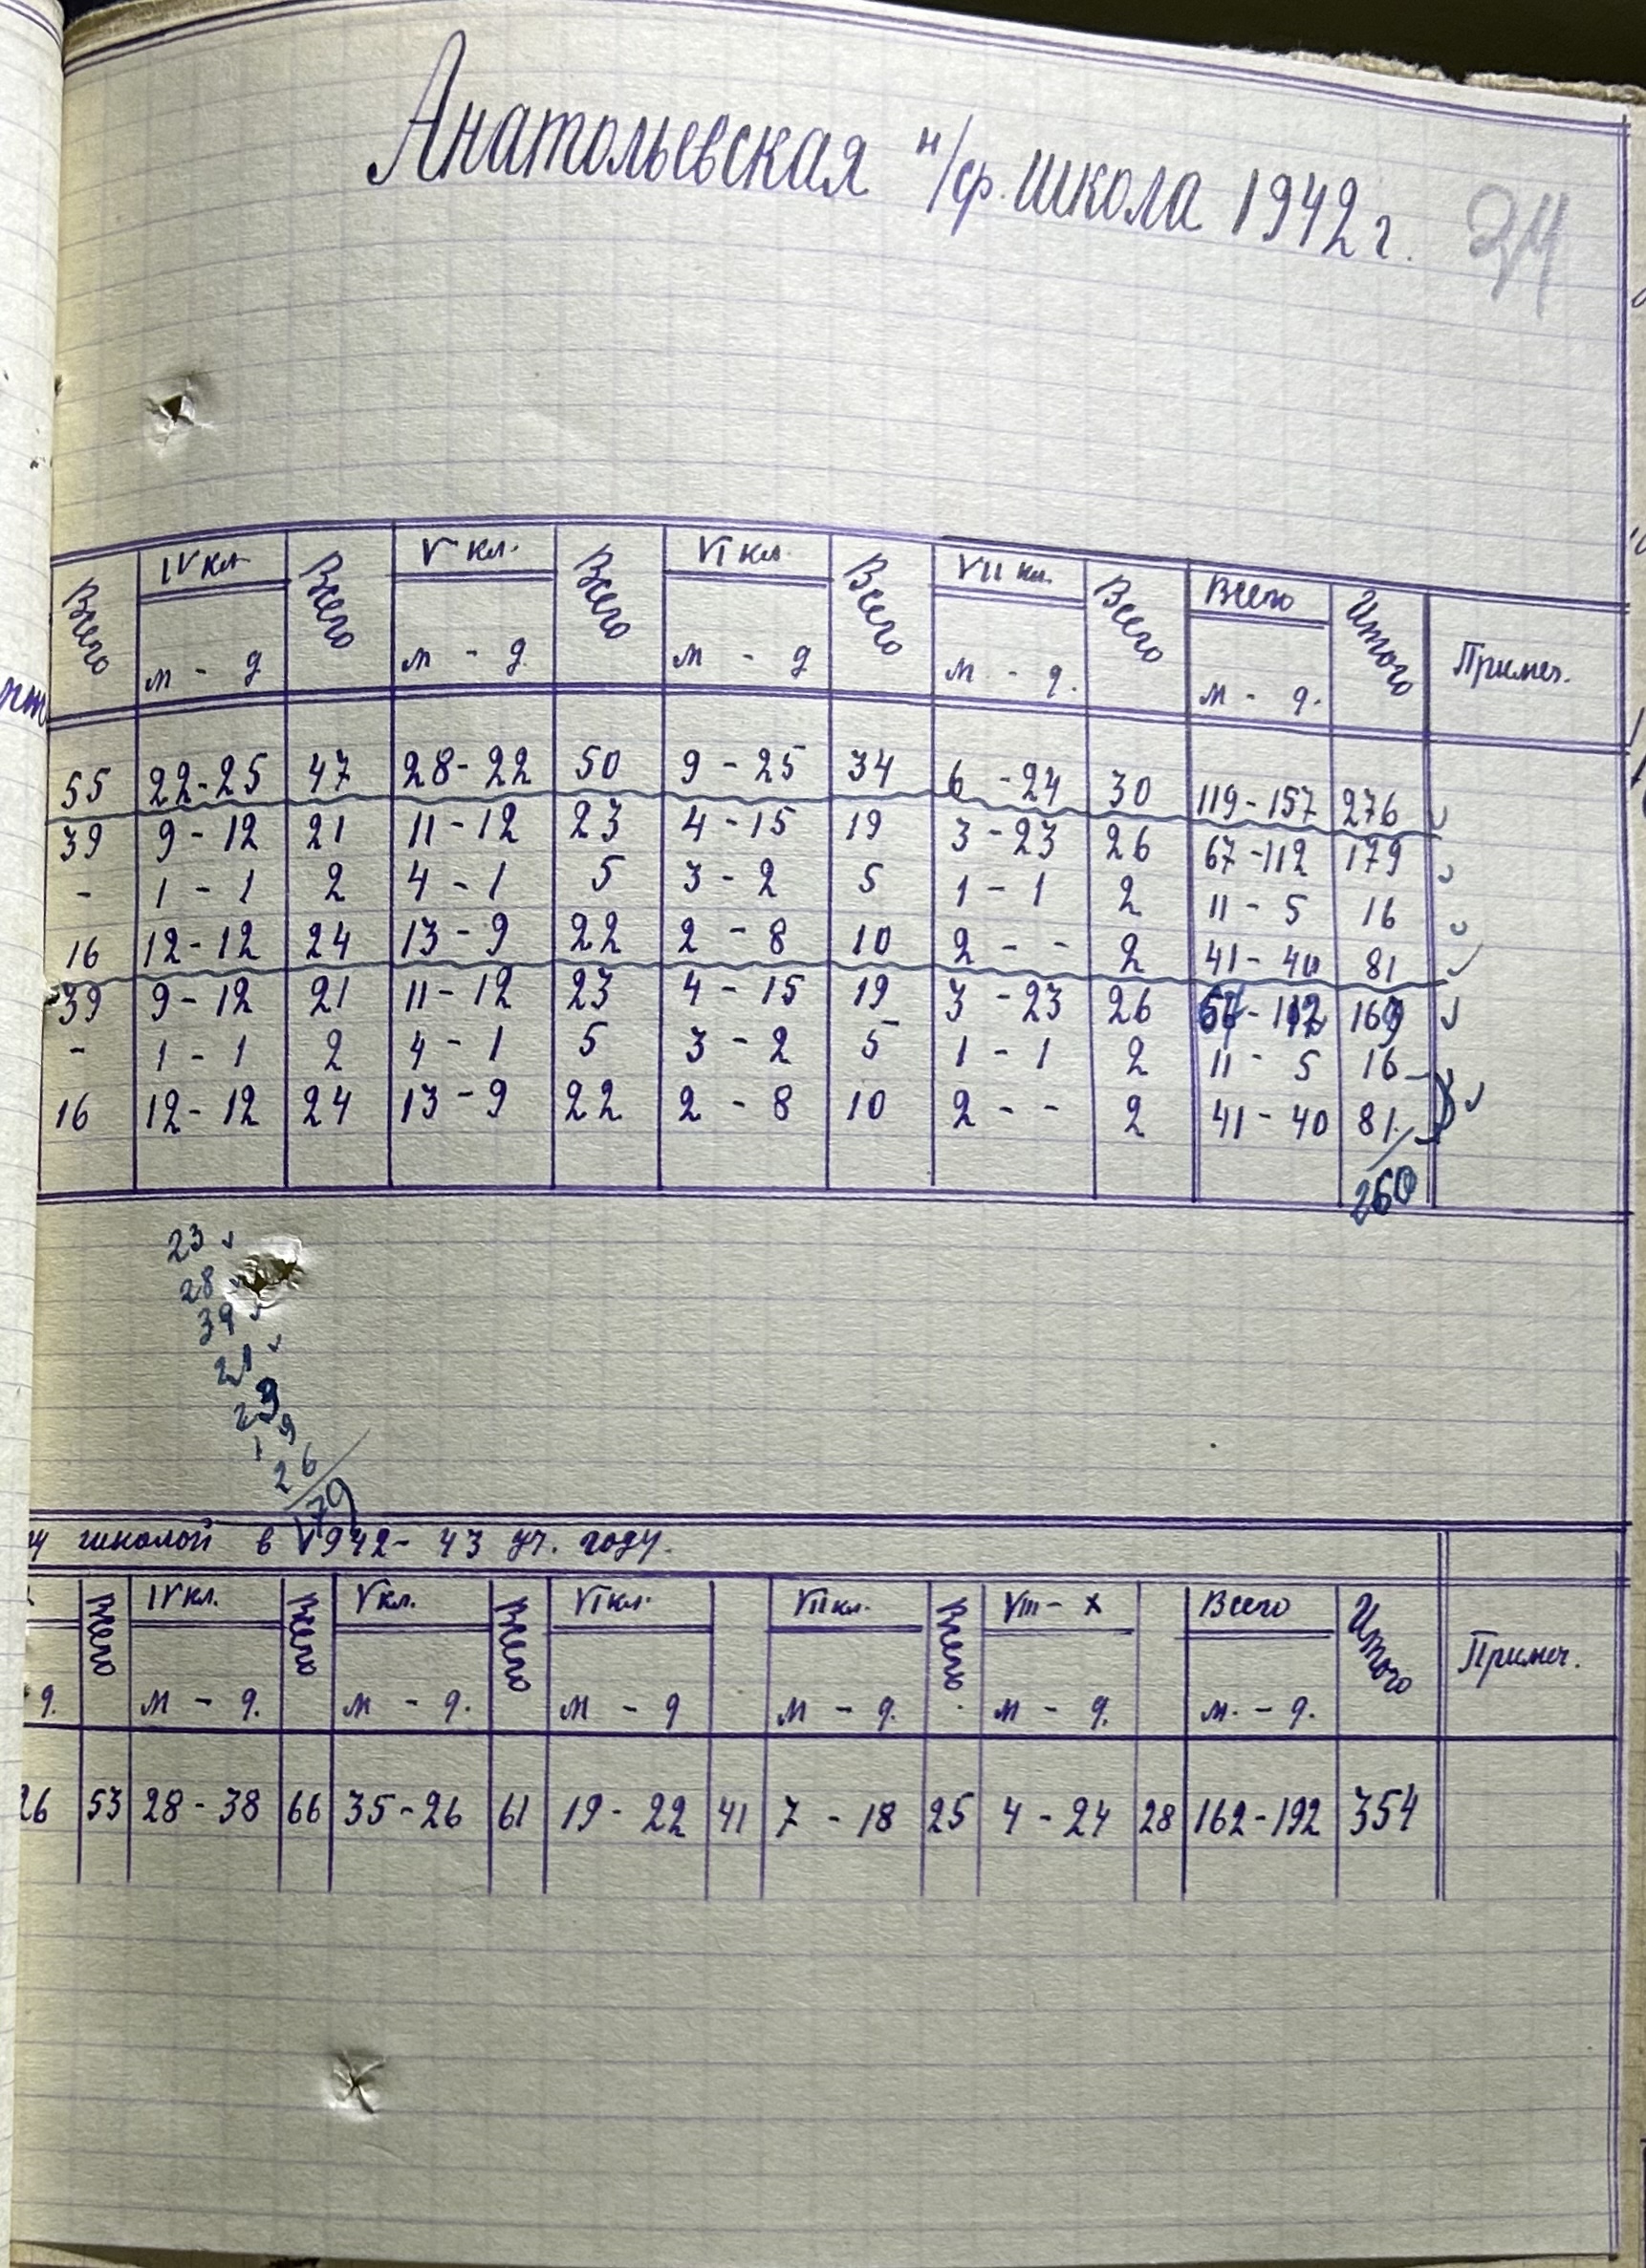 Анатольевская н/ср. школа 1942 г. 24
Всего IV кл. Всего V кл. Всего VI кл. Всего VII кл. Всего Всего Итого Примеч.
м - д м - д м - д м - д. м - д.
55 22-25 47 28-22 50 9-25 34 6-24 30 119-157 276
39 9-12 21 11-12 23 4-15 19 3-23 26 67-112 179
- 1-1 2 4-1 5 3-2 5 1-1 2 11-5 16
16 12-12 24 13-9 22 2-8 10 2 - - 2 41-40 81
39 9-12 21 11-12 23 4-15 19 3-23 26 112 169
- 1-1 2 4-1 5 3-2 5 1-1 2 11-5 16
16 12-12 24 13-9 22 2-8 10 2 - - 2 41-40 81
260
23
28
39
21
23
19
26
179
школой в 1942-43 уч. году.
Всего IV кл. Всего V кл. Всего VI кл. VII кл. Всего VIII - X Всего Итого Примеч.
д. м - д. м - д. м - д м - д. м - д. м. - д.
26 53 28-38 66 35-26 61 19-22 41 7-18 25 4-24 28 162-192 354